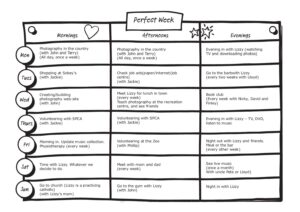 Perfect Week
Mornings
Afternoons
Evenings
Mon
Photography in the country
(with John and Terry)
(All day, once a week)
Photography in the country
(with John and Terry)
(All day, once a week)
Evening in with Lizzy (watching
TV and downloading photos)
Tues
Shopping at Sidney's
(with Jackie)
Check job ads/paper/internet/job
centre
(with Jackie)
Go to the bathroom with Lizzy
(every two weeks with Lloyd)
Wed
Creating/building
photography web site
(with John)
Meet Lizzy for lunch in town
(every week)
Teach photography at the recreation
centre, and see friends
Book club
(Every week with Nicky, David and
Finley)
Thurs
Volunteering with SPCA
(with Jackie)
Volunteering with SPCA
(with Jackie)
Evening in with Lizzy - TV, DVD,
listen to music
Fri
Morning in. Update music collection.
Physiotherapy (every week)
Volunteering at the Zoo
(with Phillip)
Night out with Lizzy and friends.
Meal or the bar
(every other week)
Sat
Time with Lizzy. Whatever we
decide to do.
Meet with mum and dad
(every week)
See live music
(once a month)
With uncle Pete or Lloyd)
Sun
Go to church (Lizzy is a practising
catholic)
(with Lizzy's mum)
Go to the gym with Lizzy
(with John)
Night in with Lizzy